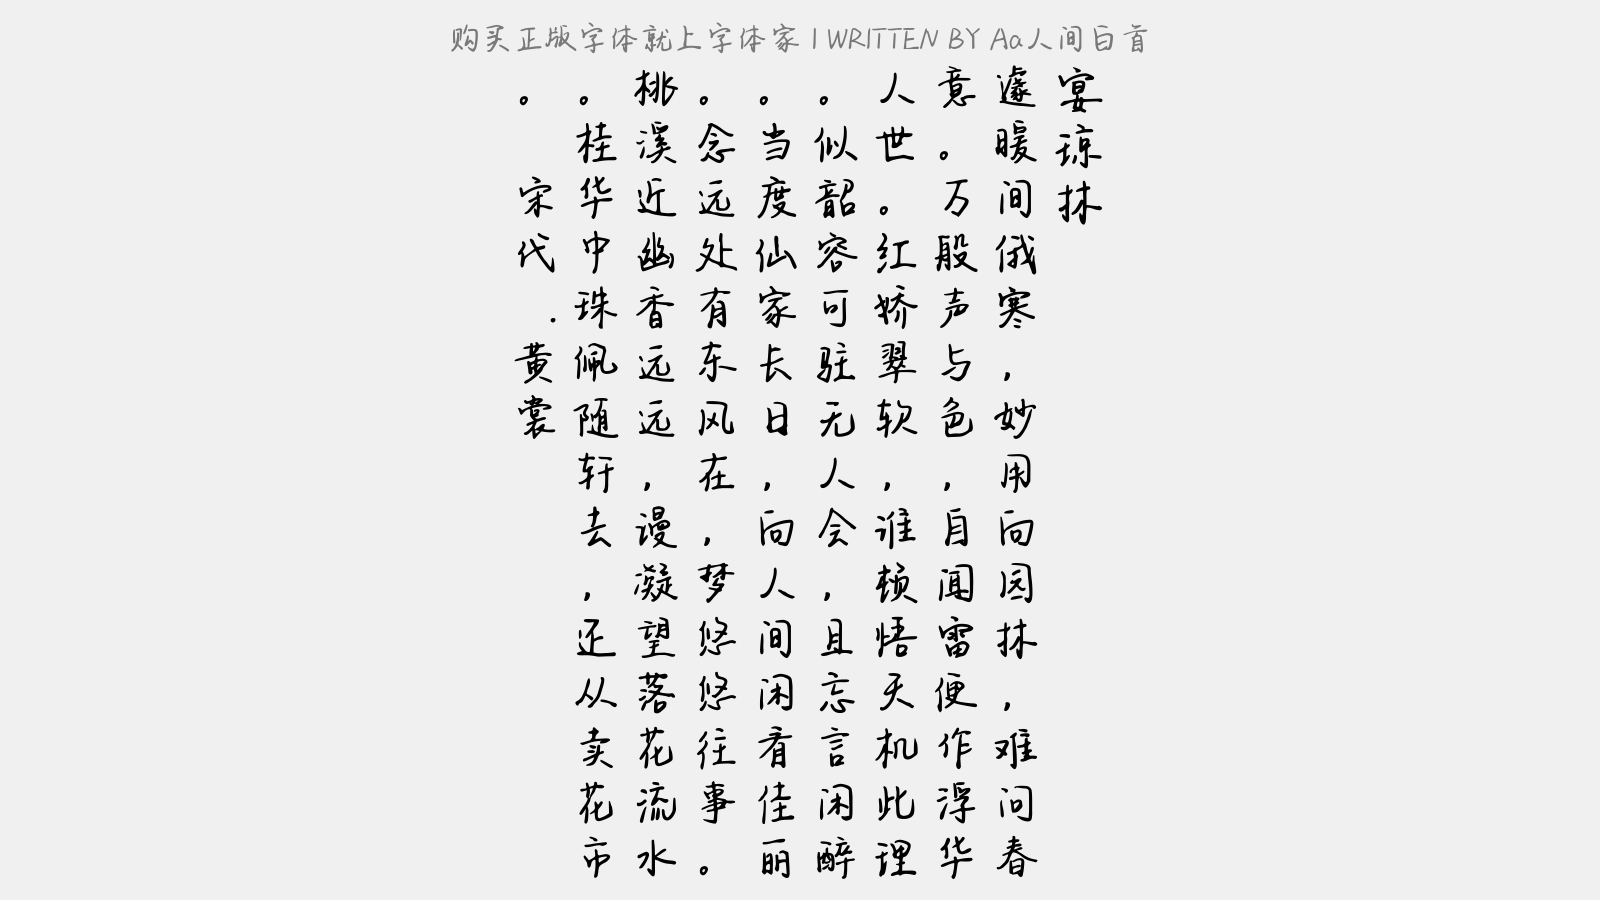 购买正版字体就上字体家 | WRITTEN BY Aa人间白首
宴琼林
遽暖间俄寒，妙用向园林，难问春
意。万般声与色，自闻雷便作浮华
人世。红娇翠软，谁顿悟天机此理
。似韶容可驻无人会，且忘言闲醉
。当度仙家长日，向人间闲看佳丽
。念远处有东风在，梦悠悠往事。
桃溪近幽香远远，谩凝望落花流水
。桂华中珠佩随轩去，还从卖花市
。 宋代.黄裳